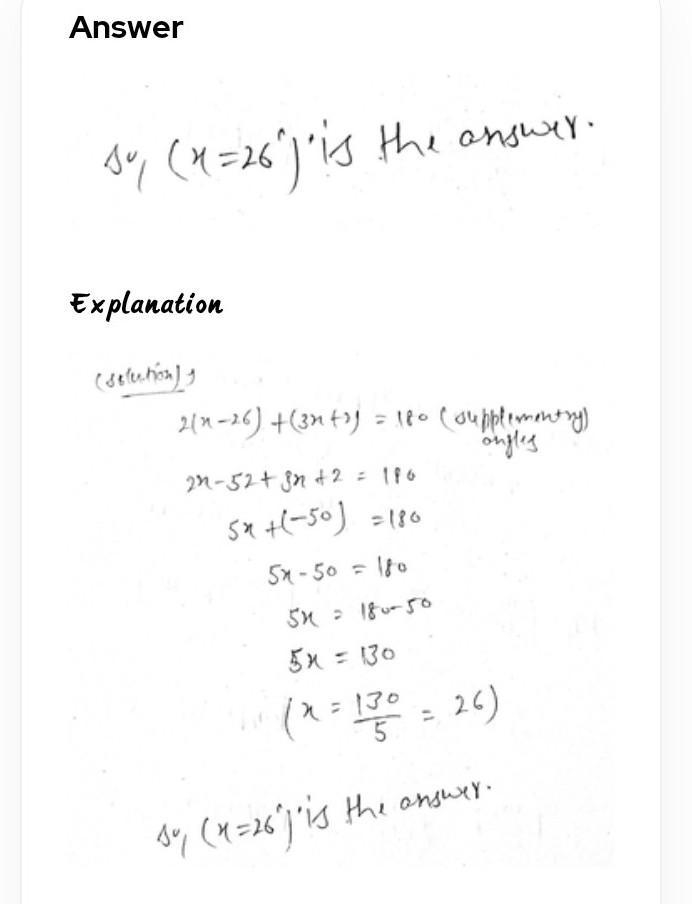 Answer
so, (x=26°) is the answer.
Explanation
(solution),
2(x-26) + (3x+2) = 180 (supplementry)
angles
2x-52+3x+2 = 180
5x+(-50) = 180
5x-50 = 180
5x = 180-50
5x = 130
(x = 130/5 = 26)
so, (x=26°) is the answer.